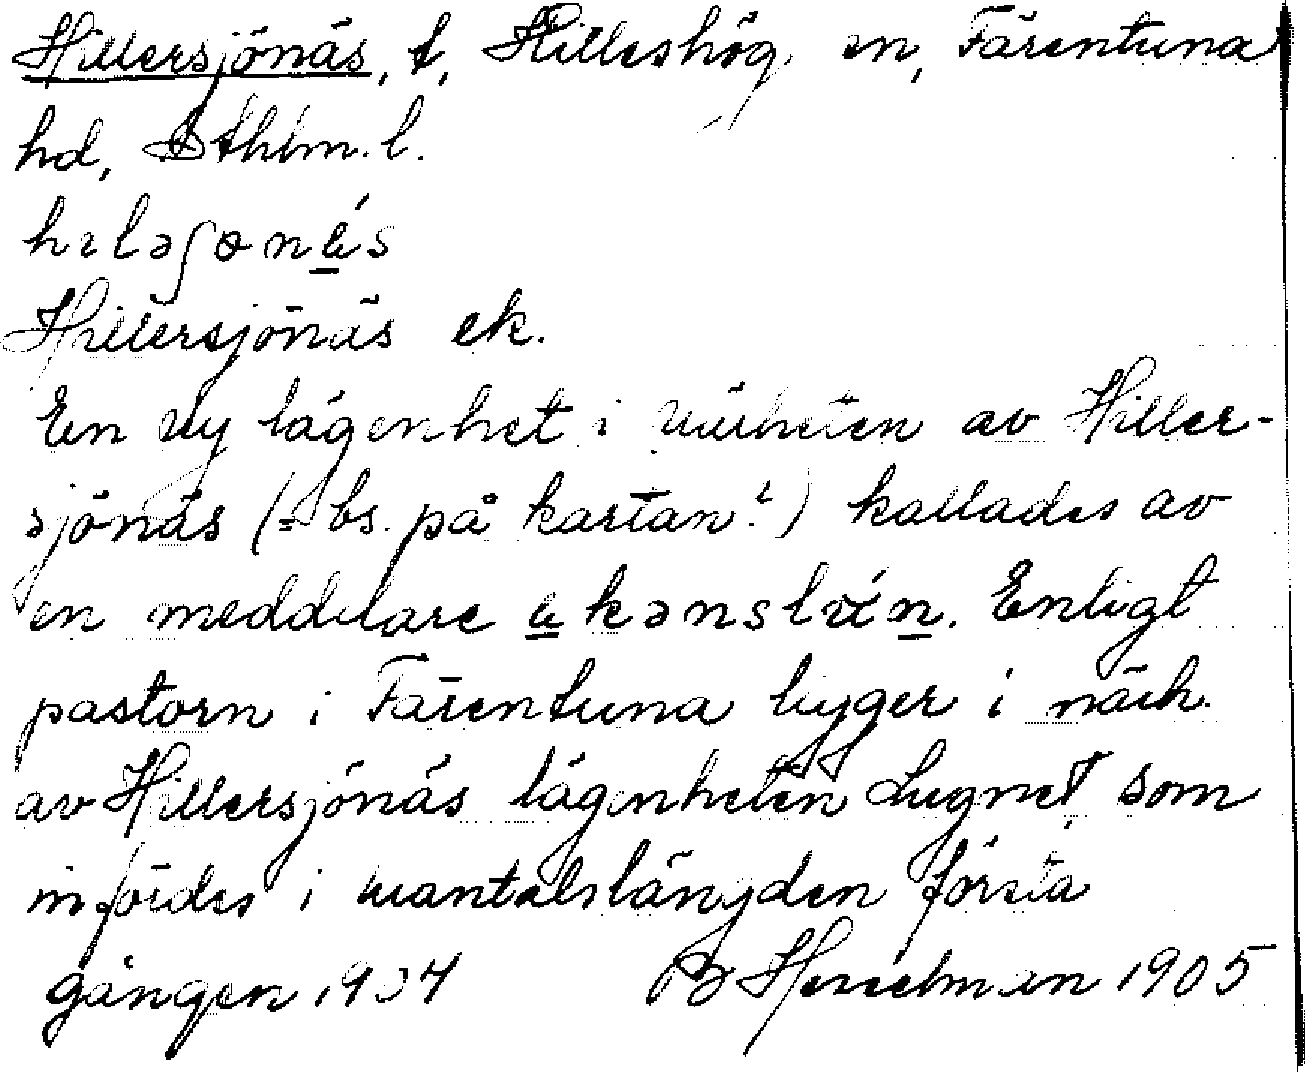 Hillersjönäs, t, Hilleshög sn, Färentuna
hd, Sthlm. l.
hɩləʃɵnǟ́s
Hillersjönäs ek.
En ny lägenhet i närheten av Hiller-
sjönäs (= bs. på kartan?) kallades av
en meddelare
Enligt
pastorn i Färentuna ligger i närh.
av Hillersjönäs lägenheten Lugnet, som
infördes i mantalslängden första
gången 1904 B Hesselman 1905